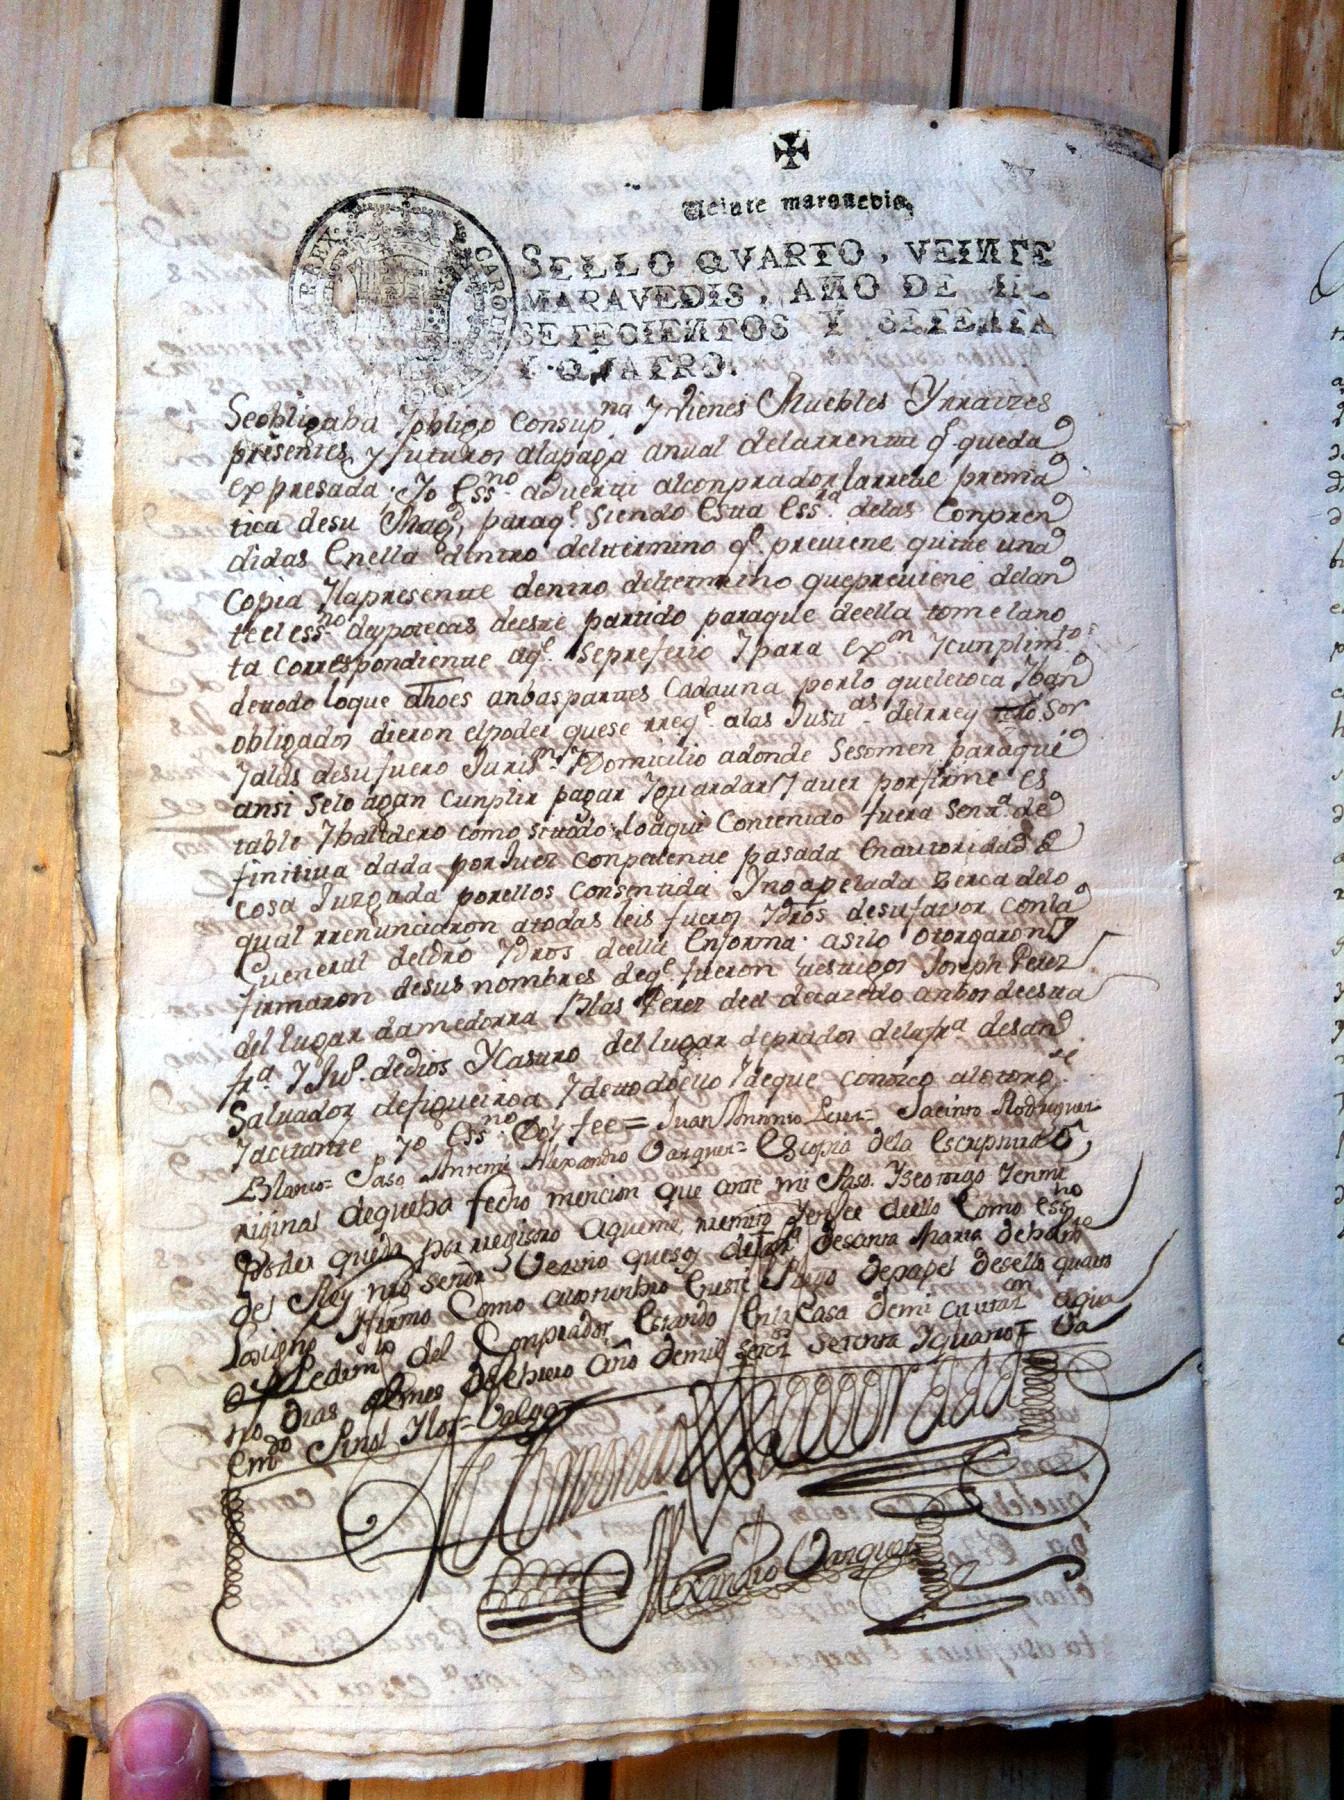 Veinte maravedis.
SELLO QVARTO, VEINTE
MARAVEDIS, AÑO DE MIL
SETECIENTOS Y SETENTA
Y QVATRO.
CAROLVS REX
Seobligaba Yobligo Consup.na Yvienes Muebles Yrraizes
presentes, y futuros alapaga anual delarrenta q.e queda
expresada. Yo Ess.no advertí alconprador larreal prema
tica desu Mag.d, paraq.e siendo Esta Ess.ra delas Conpren
didas Enella dentro deltermino q.e previene quite una
Copia Ylapresente dentro deltermino quepreviene delan
te el ess.no deypotecas deeste partido paraque deella tomelano
ta Correspondiente aq.e seprefirio Ypara ex.n Ycunplim.to
detodo loque dhoes anbaspartes Cadauna porlo queletoca Yban
obligados dieron elpoder quese rreq.e alas Just.as delrrey nro Sor
Yalas desufuero Juris.n Ydomicilio adonde Sesomen paraque
ansi selo agan Cunplir pagar Yguardar Yaver porfirme es
table Ybaledero como sitodo loaqui Contenido fuera sen.a de
finitiva dada porJuez Conpetente pasada Enautoridad de
cosa Juzgada porellos Consentida Ynoapelada Zerca delo
qual rrenunciaron atodas leis fueros Ydros desufavor conla
Gueneral deldro Ydros deella Enforma. asilo otorgaron Y
firmaron desus nombres deq.e fueron testigos Joseph Perez
del lugar damedorra Blas Perez del decazedo anbos deesta
fr.a Y Ju.o dedios Ycastro del lugar deprados delafr.a desan
Salvador defigueiroa Ydetodoello Ydeque conozco alotorg.te
Yacetante Yo Ess.no Doy fee = Juan Antonio Perez = Jacinto Rodriguez
Blanco = Paso Antemi Alexandro Vazquez = Escopia dela Escriptura o
riginal dequeba fecho mencion que ante mi Paso. Yseotorgo Yenmi
Poder queda por rregistro aqueme rremito Yenfee deello Como ess.no
del Rey nro señor Vezino quesoy desanta Maria
Losigno Yfirmo Como acostunbro Eneste Pliego depapel desello quarto
a Pedim.to del Conprador Estando Enlacasa demi avitaz.on a
no dias delmes deHebrero año demil setez.s setenta Yquatro =
em.do
Alexandro Vazquez